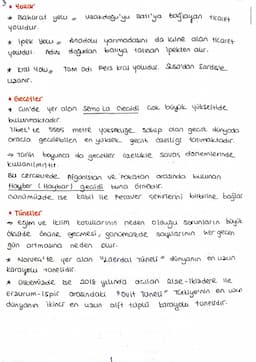 • Yollar
* Baharat Yolu → Uzakdoğu'yu Batı'ya bağlayan ticaret
yoludur.
* İpek Yolu → Anadolu yarımadasını da içine alan ticaret
yoludur. Adını doğudan batıya taşınan ipekten alır.
* Kral Yolu → Tam adı Pers Kral Yoludur. Susa'dan Sardes'e
uzanır.
• Geçitler
* Çin'de yer alan Semo La Geçidi çok büyük yükseltide
bulunmaktadır.
Tibet'te 5565 metre yüksekliğe sahip olan geçit dünyada
araçla geçilebilen en yüksek geçit özelliği taşımaktadır.
→ Tarih boyunca da geçitler özellikle savaş dönemlerinde
kullanılmıştır.
Bu çerçevede, Afganistan ve Pakistan arasında bulunan
Hayber (Haybar) geçidi buna örnektir.
Günümüzde ise Kabil ile Peşaver şehirlerini birbirine bağlar
• Tüneller
→ Eğim ve iklim koşullarının neden olduğu sorunların büyük
ölçüde önüne geçmesi, günümüzde sayılarının her geçen
gün artmasına neden olur.
* Norveç'te yer alan "Laerdal Tüneli" dünyanın en uzun
karayolu tünelidir.
* Ülkemizde ise 2018 yılında açılan Rize-İkizdere ile
Erzurum-İspir arasındaki "Ovit Tüneli" Türkiye'nin en uzun
dünyanın ikinci en uzun çift tüplü karayolu tünelidir.
1